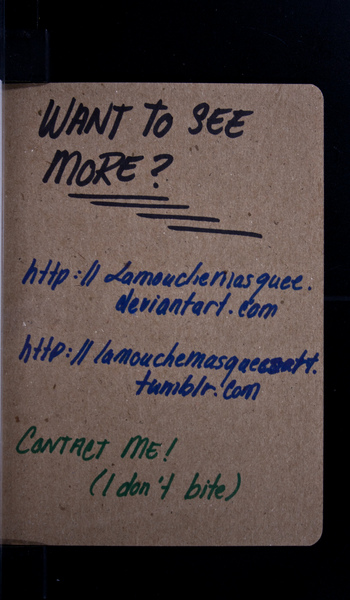 WANT TO SEE
MORE?
http://Lamouchemasquee.
deviantart.com
http://lamouchemasqueeart.
tumblr.com
CONTACT ME!
(I don't bite)